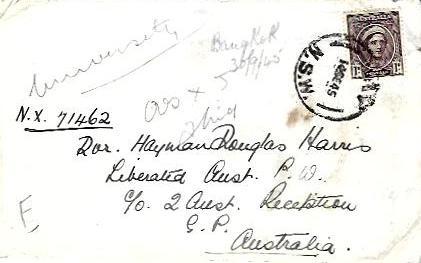 University
Bangkok
30/9/45
N.S.W
AUSTRALIA
N.X. 71462
Dvr. Hayman Douglas Harris
Liberated Aust. P.W.
C/o. 2 Aust. Reception
G.P.
Australia.
E